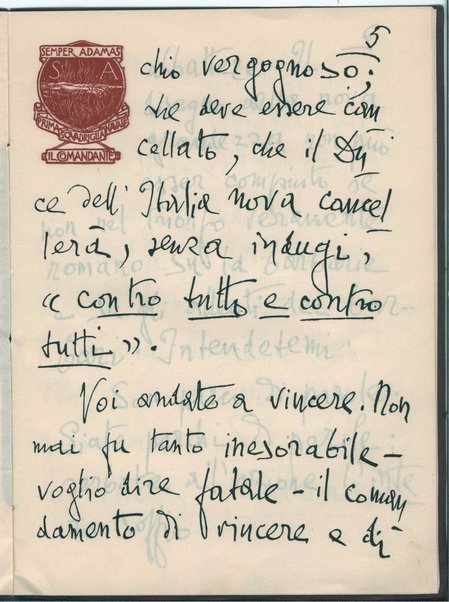 5
SEMPER ADAMAS
S A
PRIMA SQUADRIGLIA NAVALE
IL COMANDANTE
chio vergognoso;
che deve essere can
cellato, che il Du
ce dell' Italia nova cancel
lerà, senza indugi,
« contro tutto e contro
tutti ».
Voi andate a vincere. Non
mai fu tanto inesorabile –
voglio dire fatale – il coman
damento di vincere e di